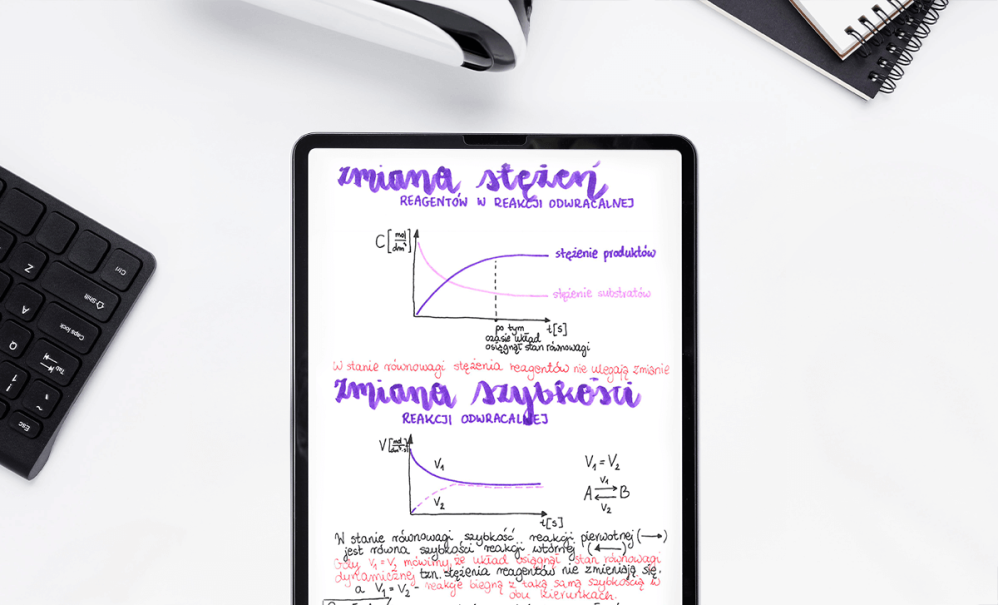 zmiana stężeń
REAGENTÓW W REAKCJI ODWRACALNEJ
C [mol/dm³]
stężenie produktów
stężenie substratów
po tym t[s]
czasie układ
osiągnął stan równowagi
W stanie równowagi stężenia reagentów nie ulegają zmianie
zmiana szybkości
REAKCJI ODWRACALNEJ
V [mol/dm³·s]
V₁
V₂
t[s]
V₁ = V₂
V₁
A ⇄ B
V₂
W stanie równowagi szybkość reakcji pierwotnej (→)
jest równa szybkości reakcji wtórnej (←)
Gdy V₁=V₂ mówimy, że układ osiągnął stan równowagi
dynamicznej tzn. stężenia reagentów nie zmieniają się.
a V₁=V₂ - reakcje biegną z taką samą szybkością w
obu kierunkach.
Ctrl
Z
Shift
A
Caps lock
Q
Tab
!
1
~
Esc